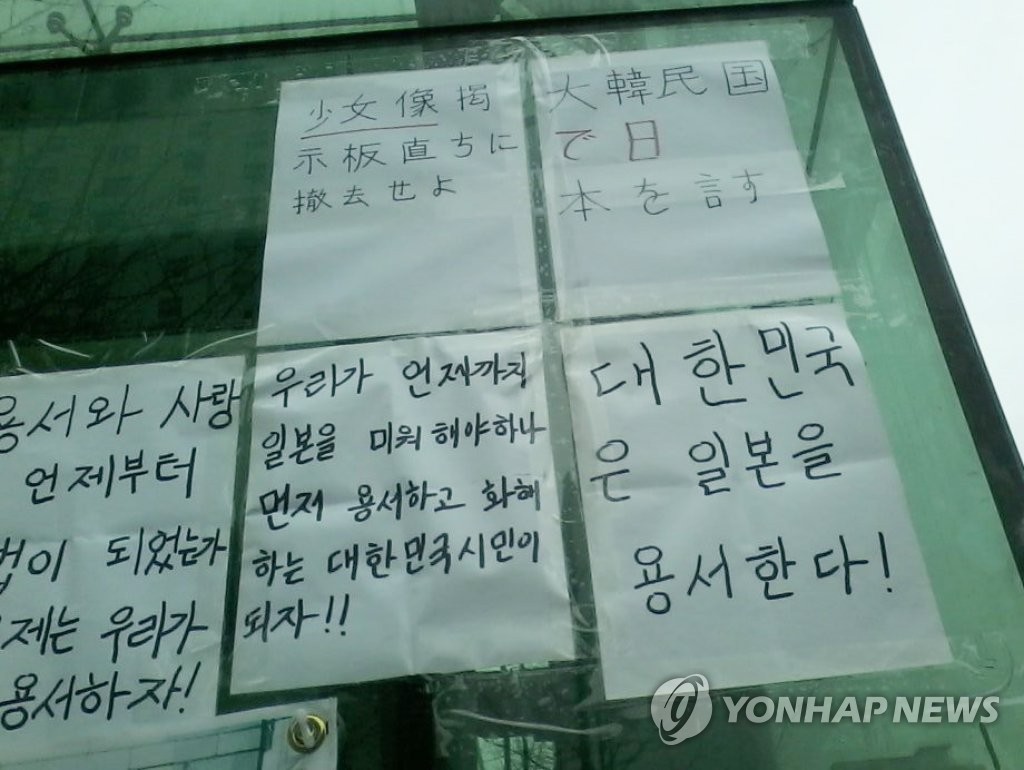 少女像掲
示板直ちに
撤去せよ
大韓民国
で日
本を討す
용서와 사랑
언제부터
법이 되었는가
제는 우리가
용서하자!
우리가 언제까지
일본을 미워 해야하나
먼저 용서하고 화해
하는 대한민국시민이
되자!!
대한민국
은 일본을
용서한다!
YONHAP NEWS